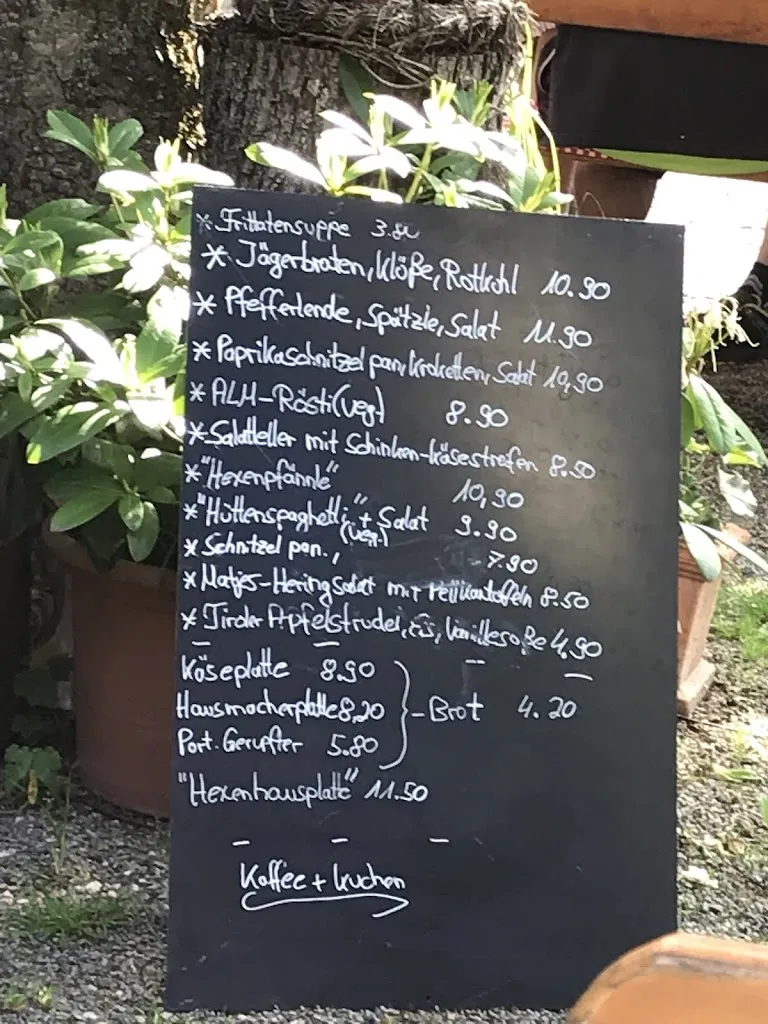 * Frittatensuppe 3.80
* Jägerbraten, Klöße, Rotkohl 10.90
* Pfefferlende, Spätzle, Salat 11.90
* Paprikaschnitzel pan, Kroketten, Salat 10,90
* ALM-Rösti (veg) 8.90
* Salatteller mit Schinken-Käsestreifen 8.50
* "Hexenpfännle" 10,90
* "Hüttenspaghetti" + Salat 9.90
(veg.)
* Schnitzel pan., 7.90
* Matjes-Heringsalat mit Pellkartoffeln 8.50
* Tiroler Apfelstrudel, Eis, Vanillesoße 4,90
Käseplatte 8.90
Hausmacherplatte 8,20 - Brot 4.20
Port. Gerupfter 5.80
"Hexenhausplatte" 11.50
Kaffee + Kuchen